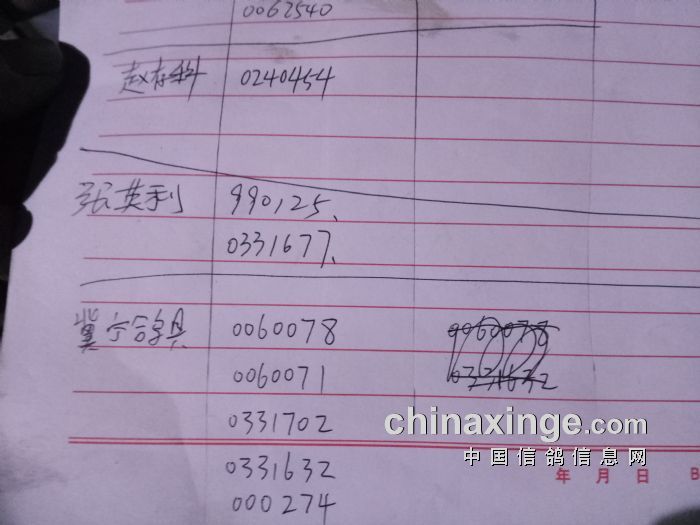 0062540
赵存科 0240454
张英利 990125、
0331677、
冀宁鸽具 0060078
0060071
0331702
0331632
000274
chinaxinge.com
中国信鸽信息网
年 月 日